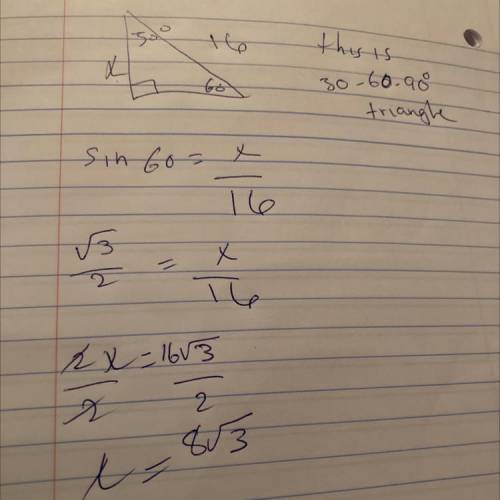 30°
16
x
60
this is
30-60-90°
triangle
sin 60 = x/16
√3/2 = x/16
2x/2 = 16√3/2
x = 8√3